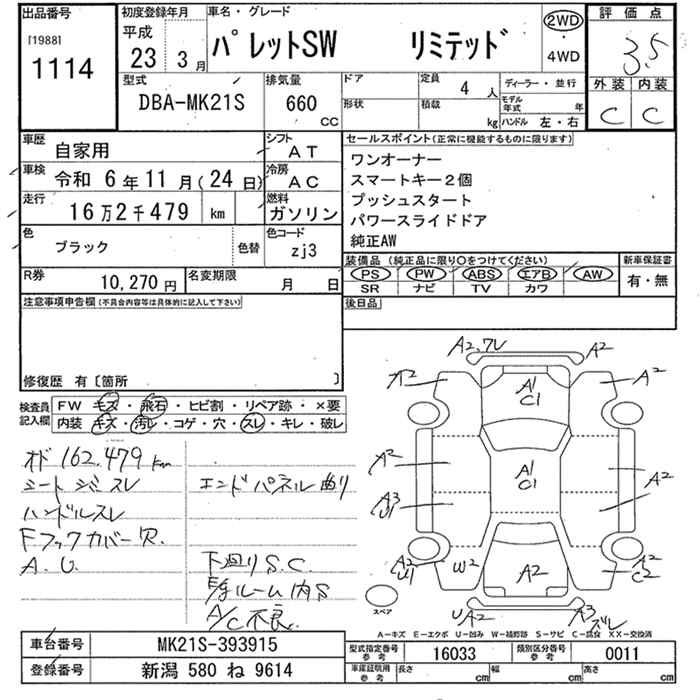 出品番号
[1988]
1114
初度登録年月
平成
23 3月
車名・グレード
パレットSW リミテッド
2WD
・
4WD
評価点
3.5
外装 内装
C C
型式
DBA-MK21S
排気量
660
CC
ドア
形状
定員
4 人
積載
kg
ディーラー・並行
モデル年式 年
ハンドル 左・右
車歴
自家用
シフト
AT
車検
令和 6年11月(24日)
冷房
AC
走行
16万2千479 km
燃料
ガソリン
色
ブラック
色替
色コード
zj3
R券
10,270円
名変期限
月 日
セールスポイント(正常に機能するものに限ります)
ワンオーナー
スマートキー2個
プッシュスタート
パワースライドドア
純正AW
装備品(純正品に限り○をつけてください)
PS PW ABS エアB AW
SR ナビ TV カワ
新車保証書
有・無
後日品
注意事項申告欄(不具合内容等は具体的に記入して下さい)
修復歴 有〔箇所 〕
検査員記入欄
FW キズ・飛石・ヒビ割・リペア跡・×要
内装 キズ・汚レ・コゲ・穴・スレ・キレ・破レ
オド 162,479 km
シート シミ スレ
ハンドルスレ
Fフックカバー欠
A.U.
エンドパネル曲り
下廻りS.C.
E/gルーム内S
A/C不良
A2,フレ
A2
A2
A2
A1
C1
A2
A1
C1
A2
A3
U1
A2
U1
W2
A2
A2
C2
UA2
A3
ズレ
スペア
A－キズ E－エクボ U－凹み W－補修跡 S－サビ C－腐食 XX－交換済
車台番号
MK21S-393915
登録番号
新潟 580 ね 9614
型式指定番号
参考
16033
類別区分番号
参考
0011
車庫証明用
参考
長さ cm
幅 cm
高さ cm